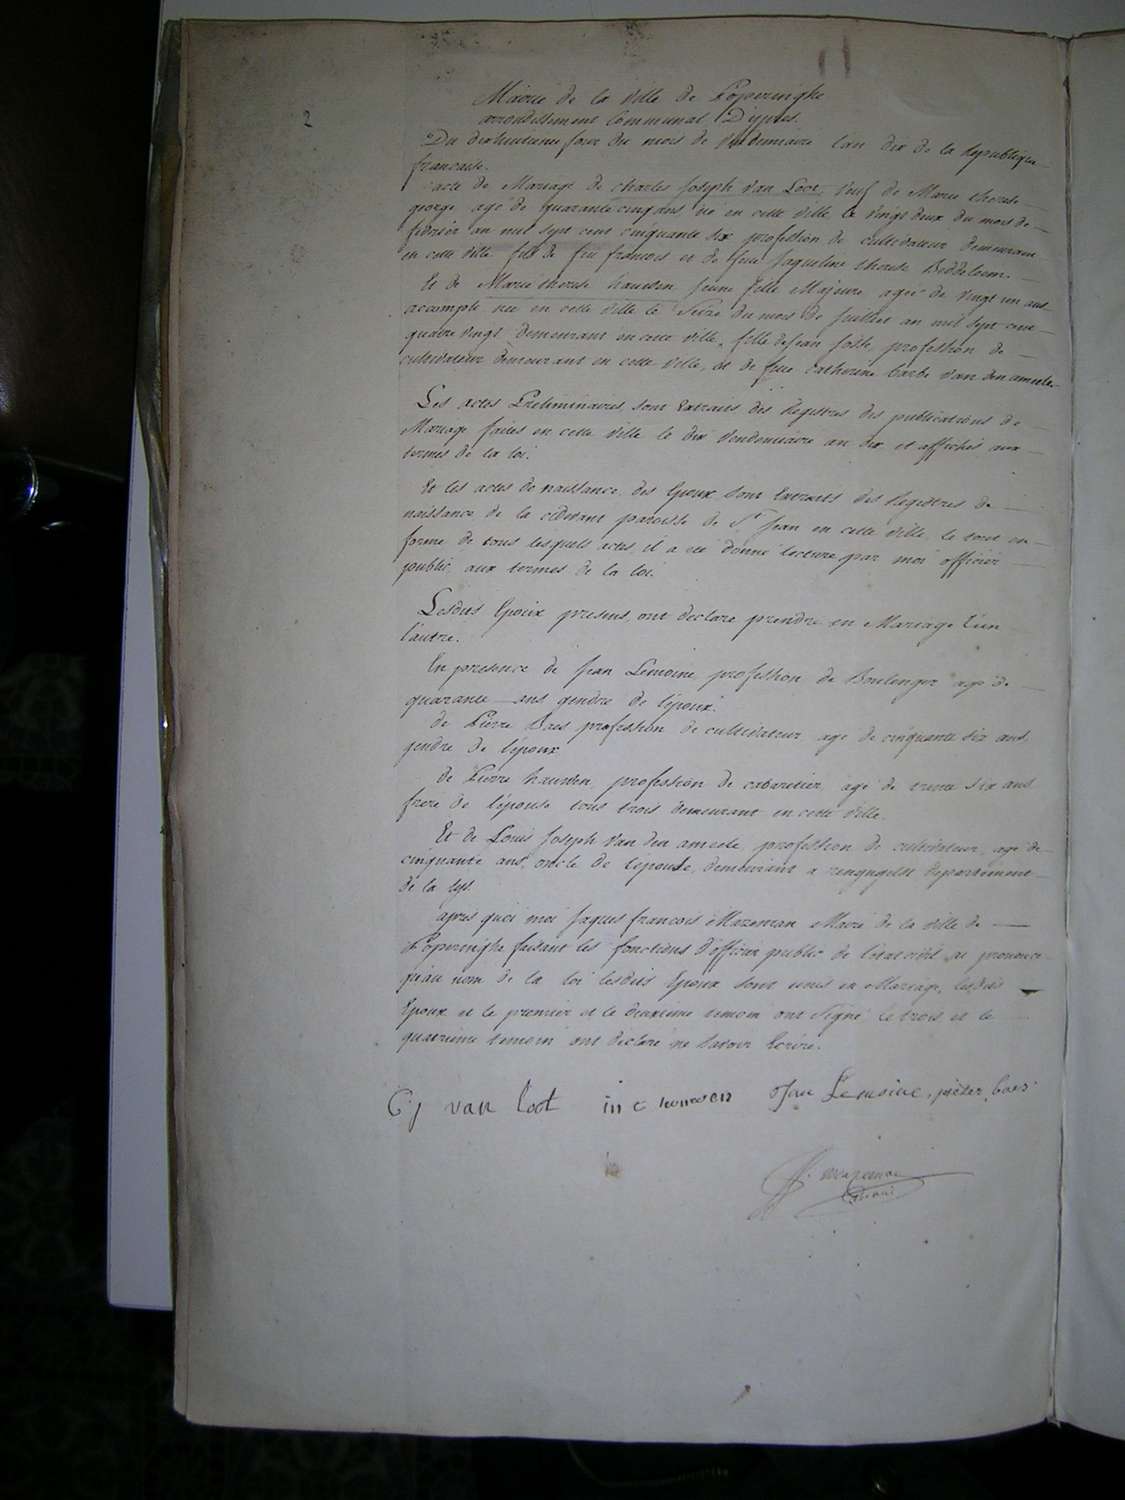 2
Mairie de la ville de Poperinghe
arrondissement Communal D'ypres.
Du dixhuitieme jour du mois de Vendemiaire l'an dix de la Republique
francaise.
acte de Mariage de charles Joseph Van Loot, veuf de Marie therese
george, agé de quarante cinq ans né en cette ville le vingt deux du mois de
fevrier an mil sept cent cinquante six profession de cultivateur demeurant
en cette ville fils de feu francois et de feue Jaqueline therese
Et de Marie therese hauwen jeune fille Majeure agée de vingt un ans
accomplis née en cette ville le Seize du mois de Juillet an mil sept cent
quatre vingt demeurant en cette ville, fille de Jean profession de
cultivateur demeurant en cette ville, et de feue Catherine barbe Van den ameele
Les actes Preliminaires sont Extraits des Registres des publications de
Mariage faites en cette ville le dix Vendemiaire an dix et affichés aux
termes de la loi.
Et les actes de naissance des Epoux sont Extraits des Registres de
naissance de la cidevant paroisse de St Jean en cette ville le tout en
forme de tous lesquels actes il a été donné lecture par moi officier
public aux termes de la loi.
Lesdits Epoux presens ont declaré prendre en Mariage l'un
l'autre.
En presence de Jean Lemoine profession de Boulenger agé de
quarante ans gendre de l'époux.
de Pierre Baes profession de cultivateur agé de cinquante six ans
gendre de l'époux
de Pierre hauwen profession de cabaretier agé de trente six ans
frere de l'épouse tous trois demeurant en cette ville.
Et de Louis Joseph Van den ameele profession de cultivateur agé de
cinquante ans oncle de l'epouse, demeurant a renyngelst departement
de la Lys.
apres quoi moi Jaques francois Mazeman Maire de la ville de
Poperinghe faisant les fonctions d'officier public de l'etat civil ai prononcé
qu'au nom de la loi lesdits Epoux sont unis en Mariage, lesdits
Epoux et le premier et le deuxieme temoin ont signé le trois et le
quatrieme temoin ont declaré ne savoir Ecrire.
C j van loot hauwen Jan Lemoine, pieter baes
mazeman